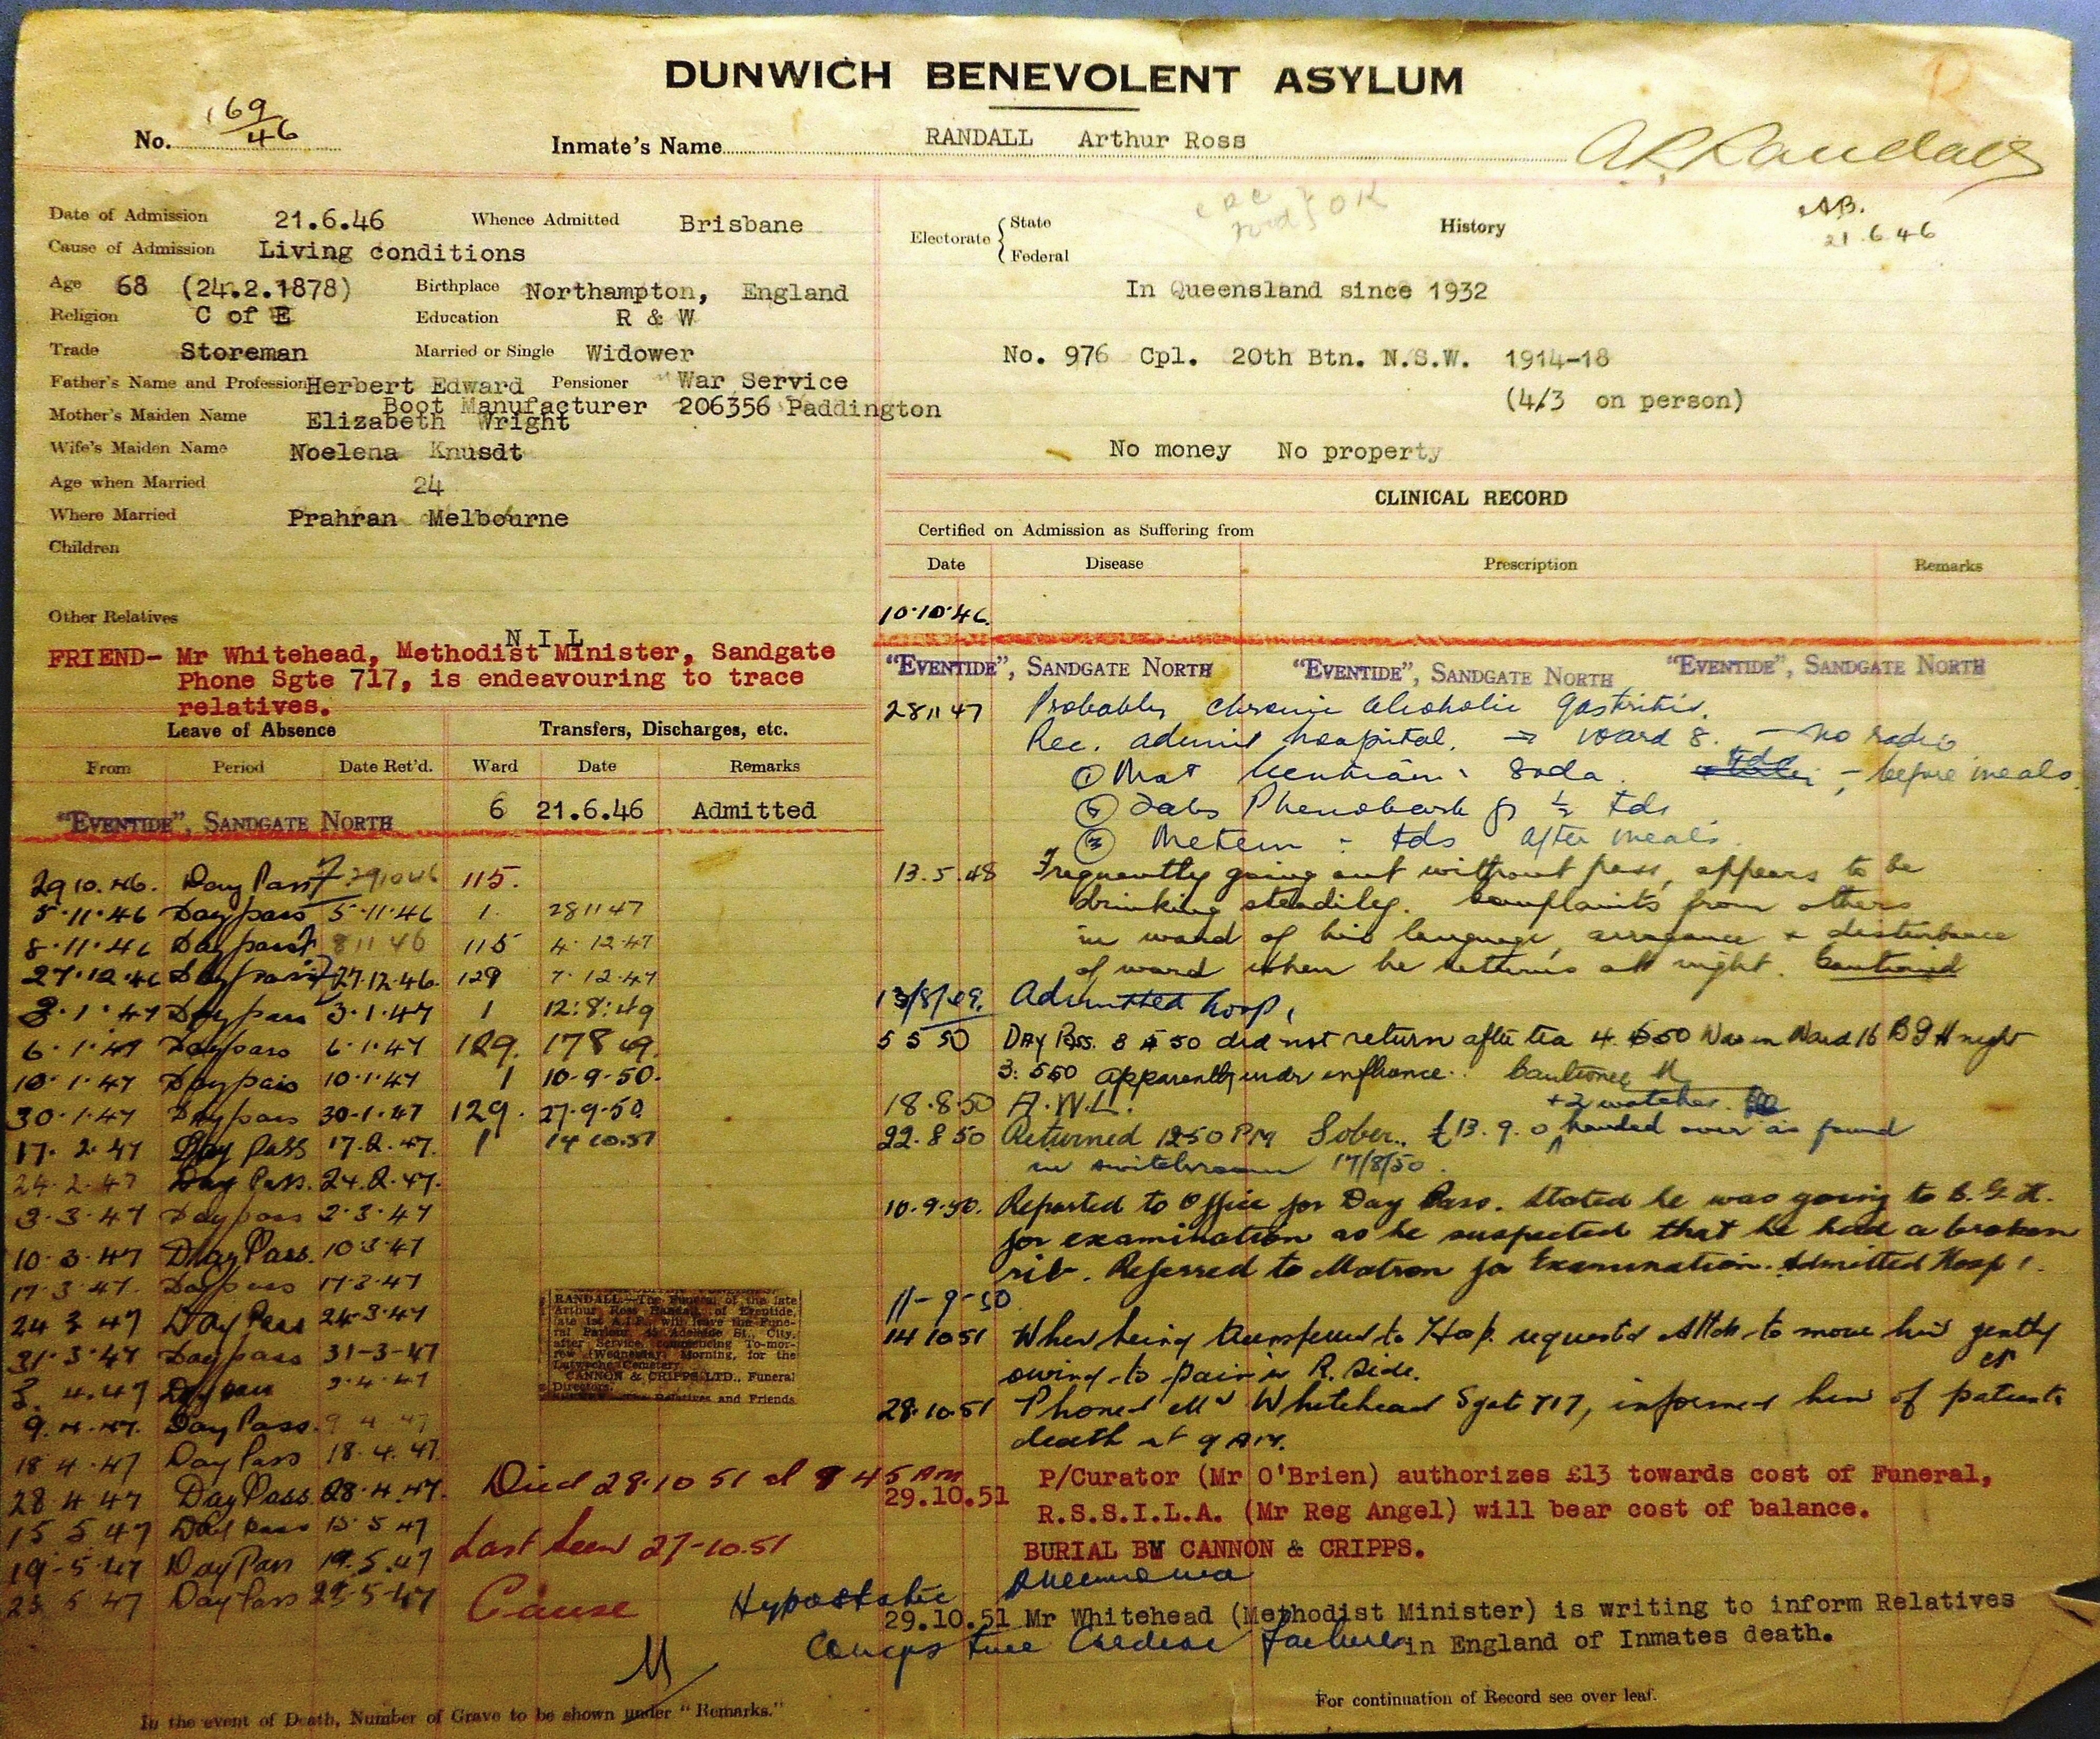 DUNWICH BENEVOLENT ASYLUM
No. 169/46
Inmate's Name RANDALL Arthur Ross
A R Randall
Date of Admission 21.6.46 Whence Admitted Brisbane
Cause of Admission Living conditions
Age 68 (24.2.1878) Birthplace Northampton, England
Religion C of E Education R & W
Trade Storeman Married or Single Widower
Father's Name and Profession Herbert Edward Pensioner War Service
Boot Manufacturer 206356 Paddington
Mother's Maiden Name Elizabeth Wright
Wife's Maiden Name Noelena Knusdt
Age when Married 24
Where Married Prahran Melbourne
Children
Other Relatives
N I L
FRIEND- Mr Whitehead, Methodist Minister, Sandgate
Phone Sgte 717, is endeavouring to trace
relatives.
Leave of Absence Transfers, Discharges, etc.
From Period Date Ret'd. Ward Date Remarks
6 21.6.46 Admitted
"EVENTIDE", SANDGATE NORTH
29 10.46. Day Pass 291046 115.
5.11.46 Day pass 5.11.46 1. 281147
8.11.46 Day pass 81146 115 4.12.47
27.12.46 Day pass 27.12.46. 129 7.12.47
3.1.47 Day pass 3.1.47 1 12:8:49
6.1.47 Day pass 6.1.47 129. 17 8 49.
10.1.47 Day pass 10.1.47 1 10-9-50.
30.1.47 Day pass 30-1.47 129. 27.9-50
17.2.47 Day Pass 17.2.47. 1 14 10.51
24.2.47 Day Pass. 24.2.47.
3-3-47 Day pass 2.3.47
10-3-47 Day Pass. 10 3.47
17.3.47. Day pass 17.3.47
24 3 47 Day Pass 24.3.47
31.3.47 Day pass 31-3-47
3. 4.47 Day pass 3.4.47
9.4.47. Day Pass. 9 4 47
18 4.47 Day Pass 18.4.47.
28 4 47 Day Pass 28.4.47.
15 5 47 Day Pass 15 5 47
19-5-47 Day Pass 19.5.47
23 5 47 Day Pass 23-5-47
RANDALL.—The Funeral of the late
Arthur Ross Randall, of Eventide,
late 1st A.I.F., will leave the Fune-
ral Parlour, Adelaide St., City,
after Service commencing To-mor-
row (Wednesday) Morning, for the
Lutwyche Cemetery.
CANNON & CRIPPS LTD., Funeral
Directors.
Relatives and Friends
Died 28.10 51 at 8 45 AM
Last seen 27-10.51
Cause Hypostatic Pneumonia
Congestive Cardiac Failure
In the event of Death, Number of Grave to be shown under "Remarks."
Electorate State Federal
OK
History
21.6.46
In Queensland since 1932
No. 976 Cpl. 20th Btn. N.S.W. 1914-18
(4/3 on person)
No money No property
CLINICAL RECORD
Certified on Admission as Suffering from
Date Disease Prescription Remarks
10.10.46.
"EVENTIDE", SANDGATE NORTH "EVENTIDE", SANDGATE NORTH "EVENTIDE", SANDGATE NORTH
281147 Probably chronic alcoholic gastritis.
Rec. admit hospital. → Ward 8. - no radio
① Mist Gentian & Soda. tds - before meals
② Tabs Phenobarb gr ½ tds
③ tds after meals.
13.5.48 Frequently going out without pass, appears to be
drinking steadily. Complaints from others
in ward of his language, arrogance & disturbance
of ward when he returns at night. Cautioned
13/8/49. Admitted hosp 1
5 5 50 DAY Pass. 3 5 50 did not return after tea 4.5.50 Was in Ward 16 B G H night
3.5.50 apparently under influence. Cautioned
18.8.50 A.W.L.
+ 2 watches
22.8 50 Returned 1250 PM Sober. £13.9.0 handed over as found
in 17/8/50.
10.9.50. Reported to Office for Day Pass. Stated he was going to B.G.H.
for examination as he suspected that he had a broken
rib. Referred to Matron for Examination. Admitted Hosp 1.
11-9-50
14 10 51 When being transferred to Hosp. requested Attdt to move him gently
owing to pain in R. Side.
28.10.51 Phoned Mr Whitehead Sgat 717, informed him of patients
death at 9 AM.
29.10.51 P/Curator (Mr O'Brien) authorizes £13 towards cost of Funeral,
R.S.S.I.L.A. (Mr Reg Angel) will bear cost of balance.
BURIAL BY CANNON & CRIPPS.
29.10.51 Mr Whitehead (Methodist Minister) is writing to inform Relatives
in England of Inmates death.
For continuation of Record see over leaf.